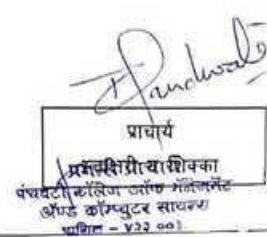 प्राचार्य
शिक्का
पंचवटी कॉलेज ऑफ मॅनेजमेंट
अ‍ॅण्ड कॉम्प्युटर सायन्स
४२२ ००३